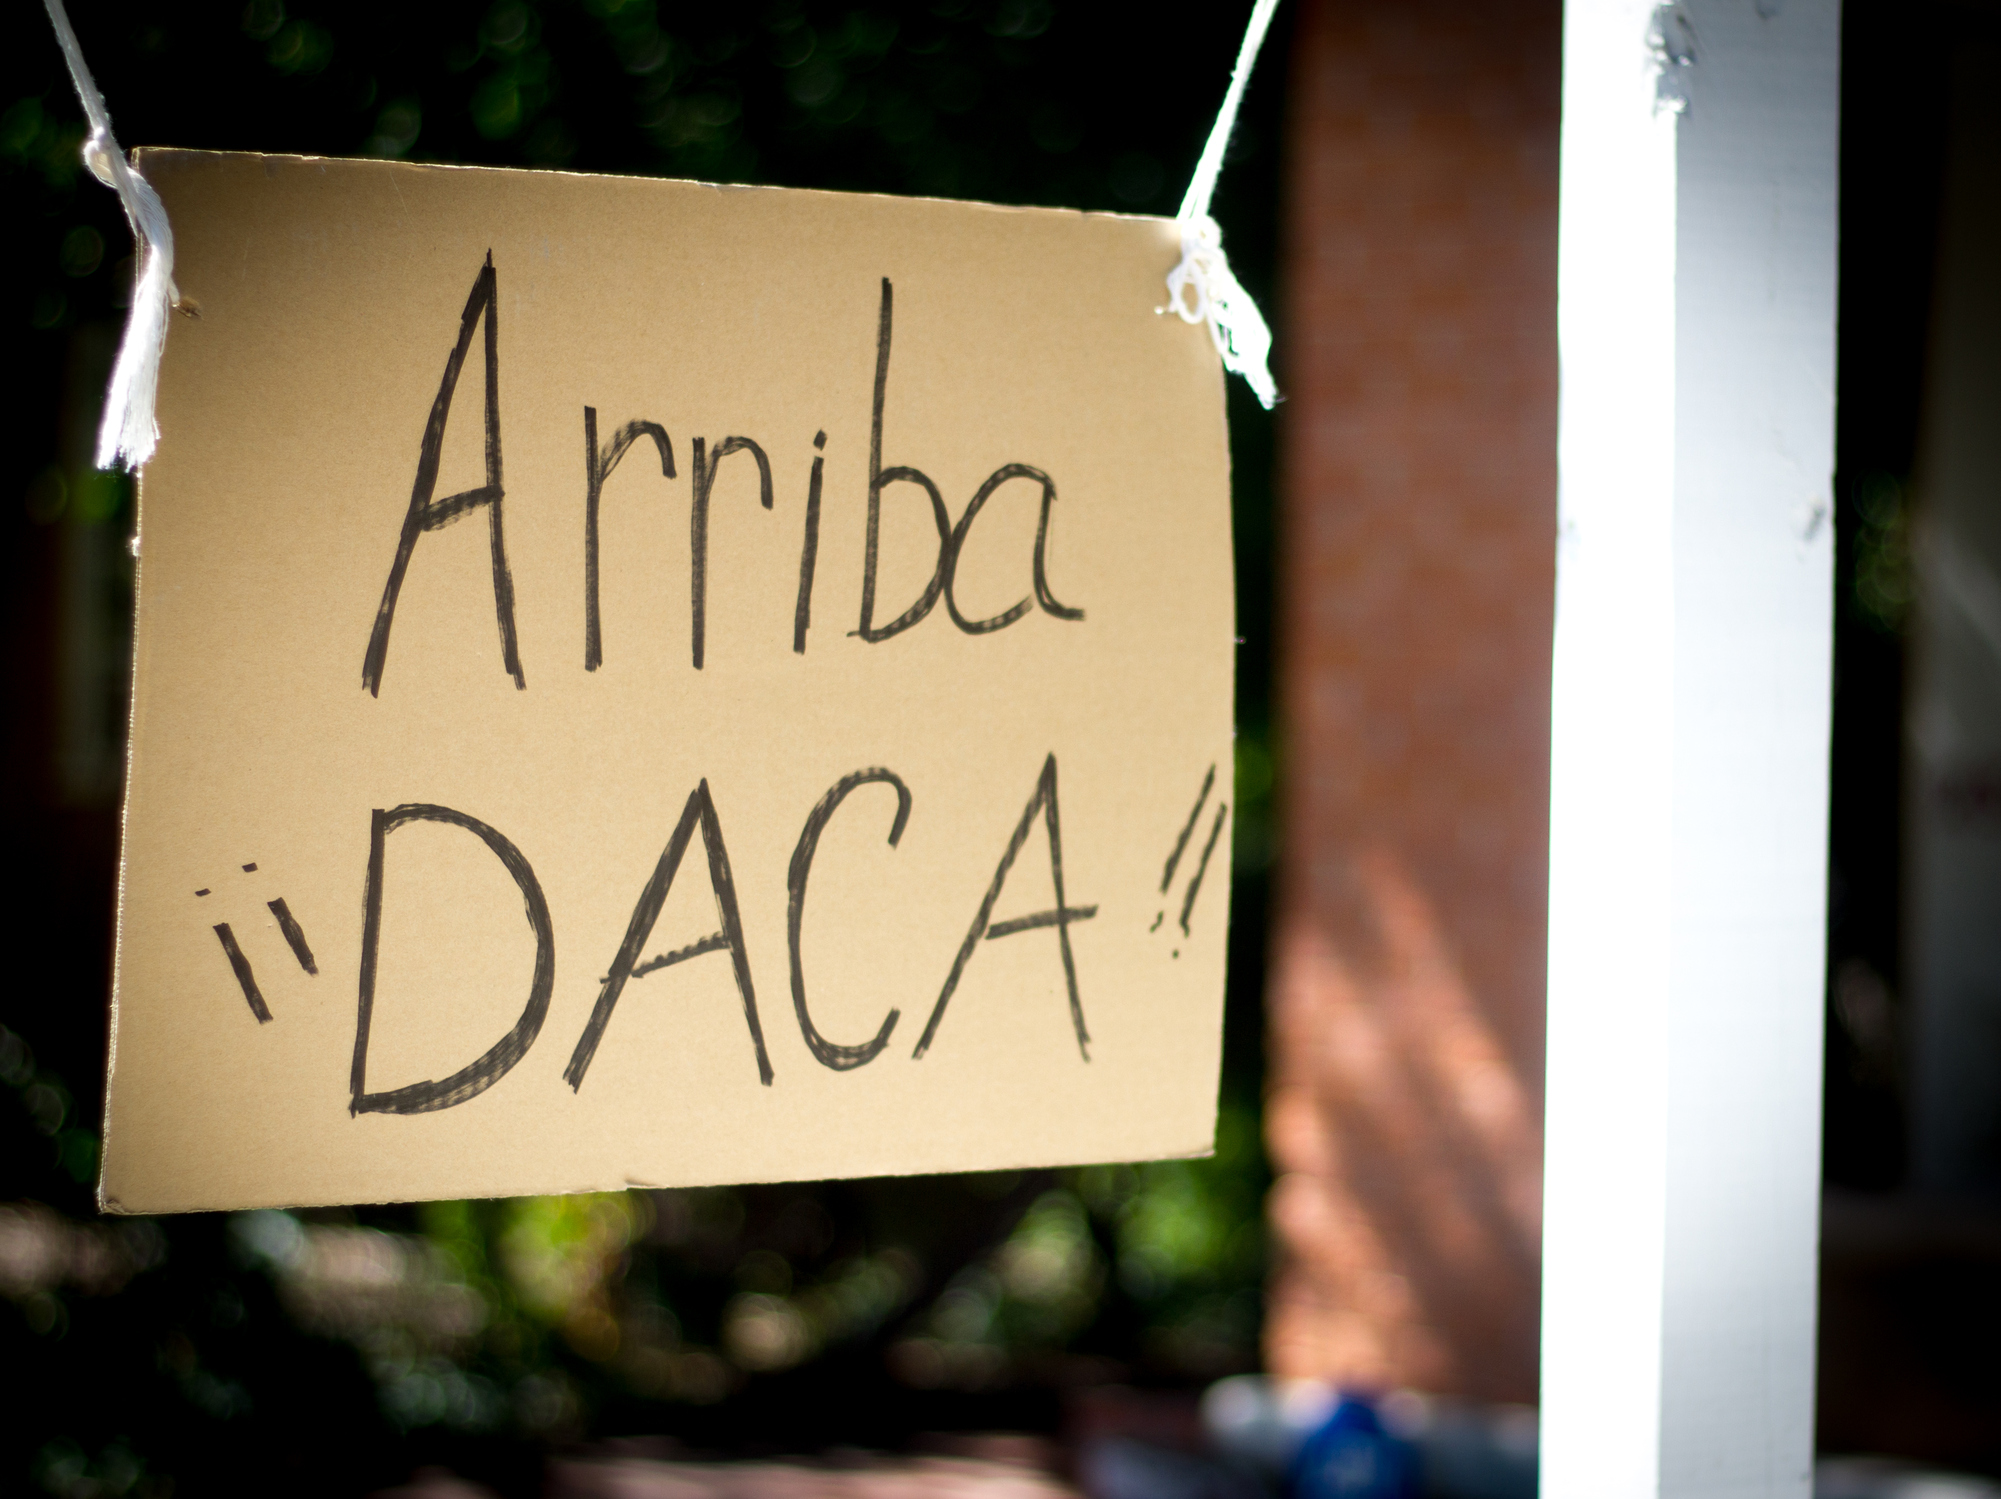 Arriba
¡¡DACA!!